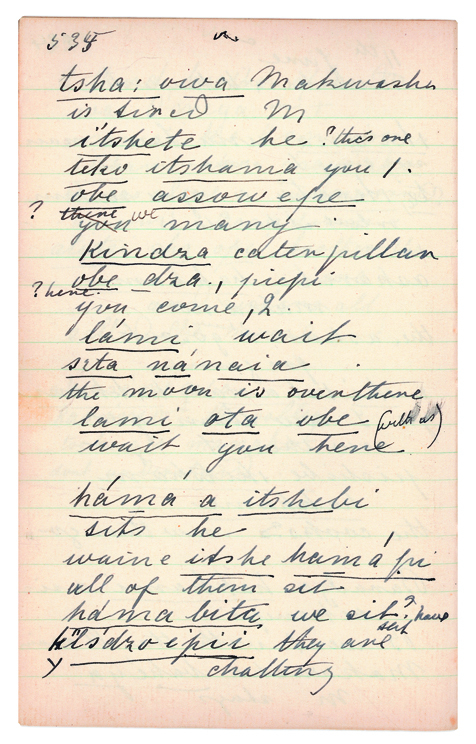 535
tsha: oiwa Makwasha
is tired M
itshete he ? this one
teko itshama you 1.
obe assowepe
? there we
you many
Kindza caterpillar
obe dza., piepi
? here
you come, 2.
lámi wait
szta nánaia
the moon is over there
lami ota obe (with us)
wait you here
hámá a itshebi
sits he
waine itshe hamápi
all of them sit
háma bita we sit, ? have
sat
itsdzoipii they are
chatting